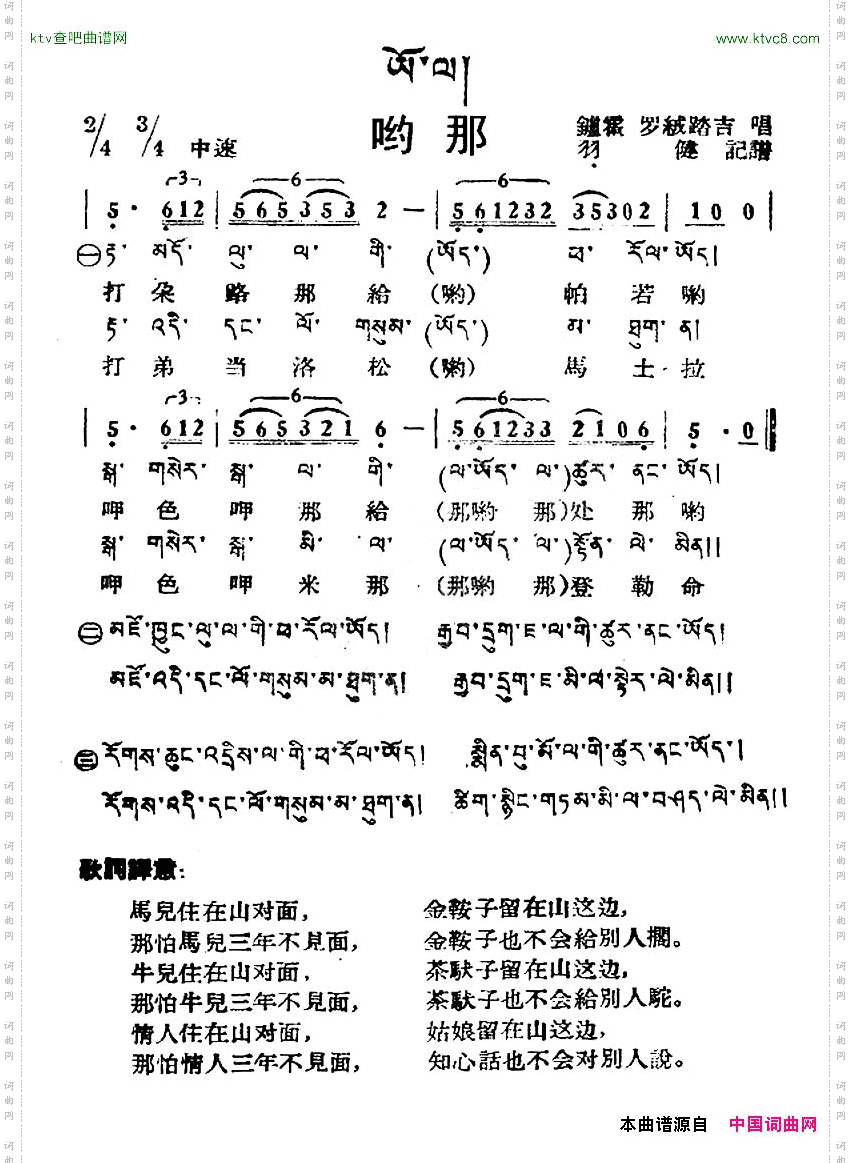 ktv查吧曲谱网 www.ktvc8.com
ཨོ་ལ།
哟那
2/4 3/4 中速
鑪霍 罗絨踏吉 唱
羽健 記譜
5· 612 565353 2 — 561232 35302 100
㊀ རྟ་ མདོ་ ལུ་ ལ་ གི་ (ཨོད་) ཕ་ རོལ་ ཨོད།
打 朶 路 那 給 (喲) 帕 若 喲
རྟ་ འདི་ དང་ ལོ་ གསུམ་ (ཨོད་) མ་ ཐུག་ ན།
打 弟 当 洛 松 (喲) 馬 土 拉
5· 612 565321 6 — 561233 2106 5· 0
སྒ་ གསེར་ སྒ་ ལ་ གི་ (ལ་ཨོད་ ལ་) ཚུར་ ནང་ ཨོད།
呷 色 呷 那 給 (那喲 那) 处 那 喲
སྒ་ གསེར་ སྒ་ མི་ ལ་ (ལ་ཨོད་ ལ་) སྟོན་ ལེ་ མིན།།
呷 色 呷 米 那 (那喲 那) 登 勒 命
㊁ མཛོ་ཁྱུང་ལུ་ལ་གི་ཕ་རོལ་ཨོད། རྒྱབ་དྲུག་ཇ་ལ་གི་ཚུར་ནང་ཨོད།
མཛོ་འདི་དང་ལོ་གསུམ་མ་ཐུག་ན། རྒྱབ་དྲུག་ཇ་མི་ལ་སྟེར་ལེ་མིན།།
㊂ རོགས་ཆུང་འདྲིས་ལ་གི་ཕ་རོལ་ཨོད། སྨིན་བུ་མོ་ལ་གི་ཚུར་ནང་ཨོད།
རོགས་འདི་དང་ལོ་གསུམ་མ་ཐུག་ན། ཚིག་སྙིང་གཏམ་མི་ལ་བཤད་ལེ་མིན།།
歌詞譯意:
馬兒住在山对面, 金鞍子留在山这边,
那怕馬兒三年不見面, 金鞍子也不会給別人擱。
牛兒住在山对面, 茶馱子留在山这边,
那怕牛兒三年不見面, 茶馱子也不会給別人駝。
情人住在山对面, 姑娘留在山这边,
那怕情人三年不見面, 知心話也不会对別人說。
本曲谱源自 中国词曲网